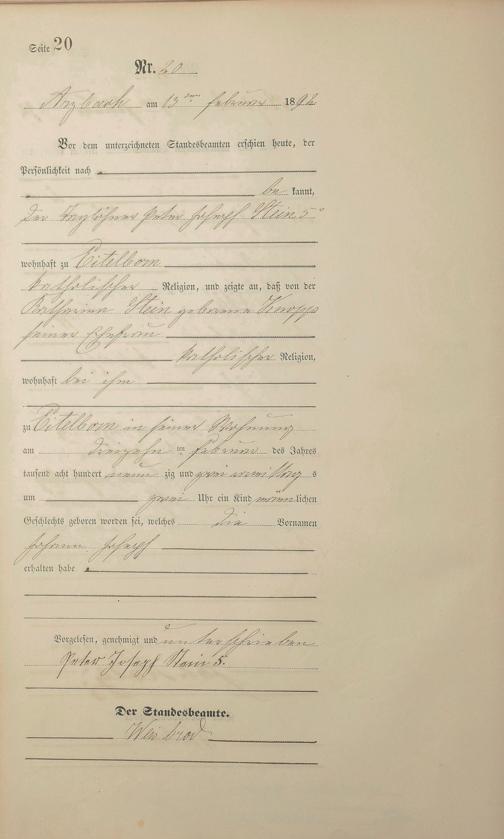 Seite 20
Nr. 20
Arzbach am 13ten Februar 1892
Vor dem unterzeichneten Standesbeamten erschien heute, der
Persönlichkeit nach
be kannt,
der Taglöhner Peter Joseph Stein 5r
wohnhaft zu Eitelborn
katholischer Religion, und zeigte an, daß von der
Katharina Stein geborene Knopp
seiner Ehefrau
katholischer Religion,
wohnhaft bei ihm
zu Eitelborn in seiner Wohnung
am dreizehnten Februar des Jahres
tausend acht hundert neun zig und zwei Vormittags
um zwei Uhr ein Kind männlichen
Geschlechts geboren worden sei, welches die Vornamen
Johann Joseph
erhalten habe
Vorgelesen, genehmigt und unterschrieben
Peter Joseph Stein 5.
Der Standesbeamte.
Weisbrod